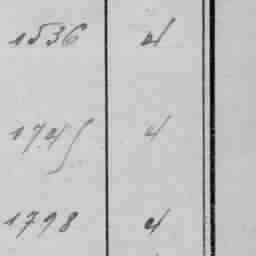 1536 4
1745 4
1798 4